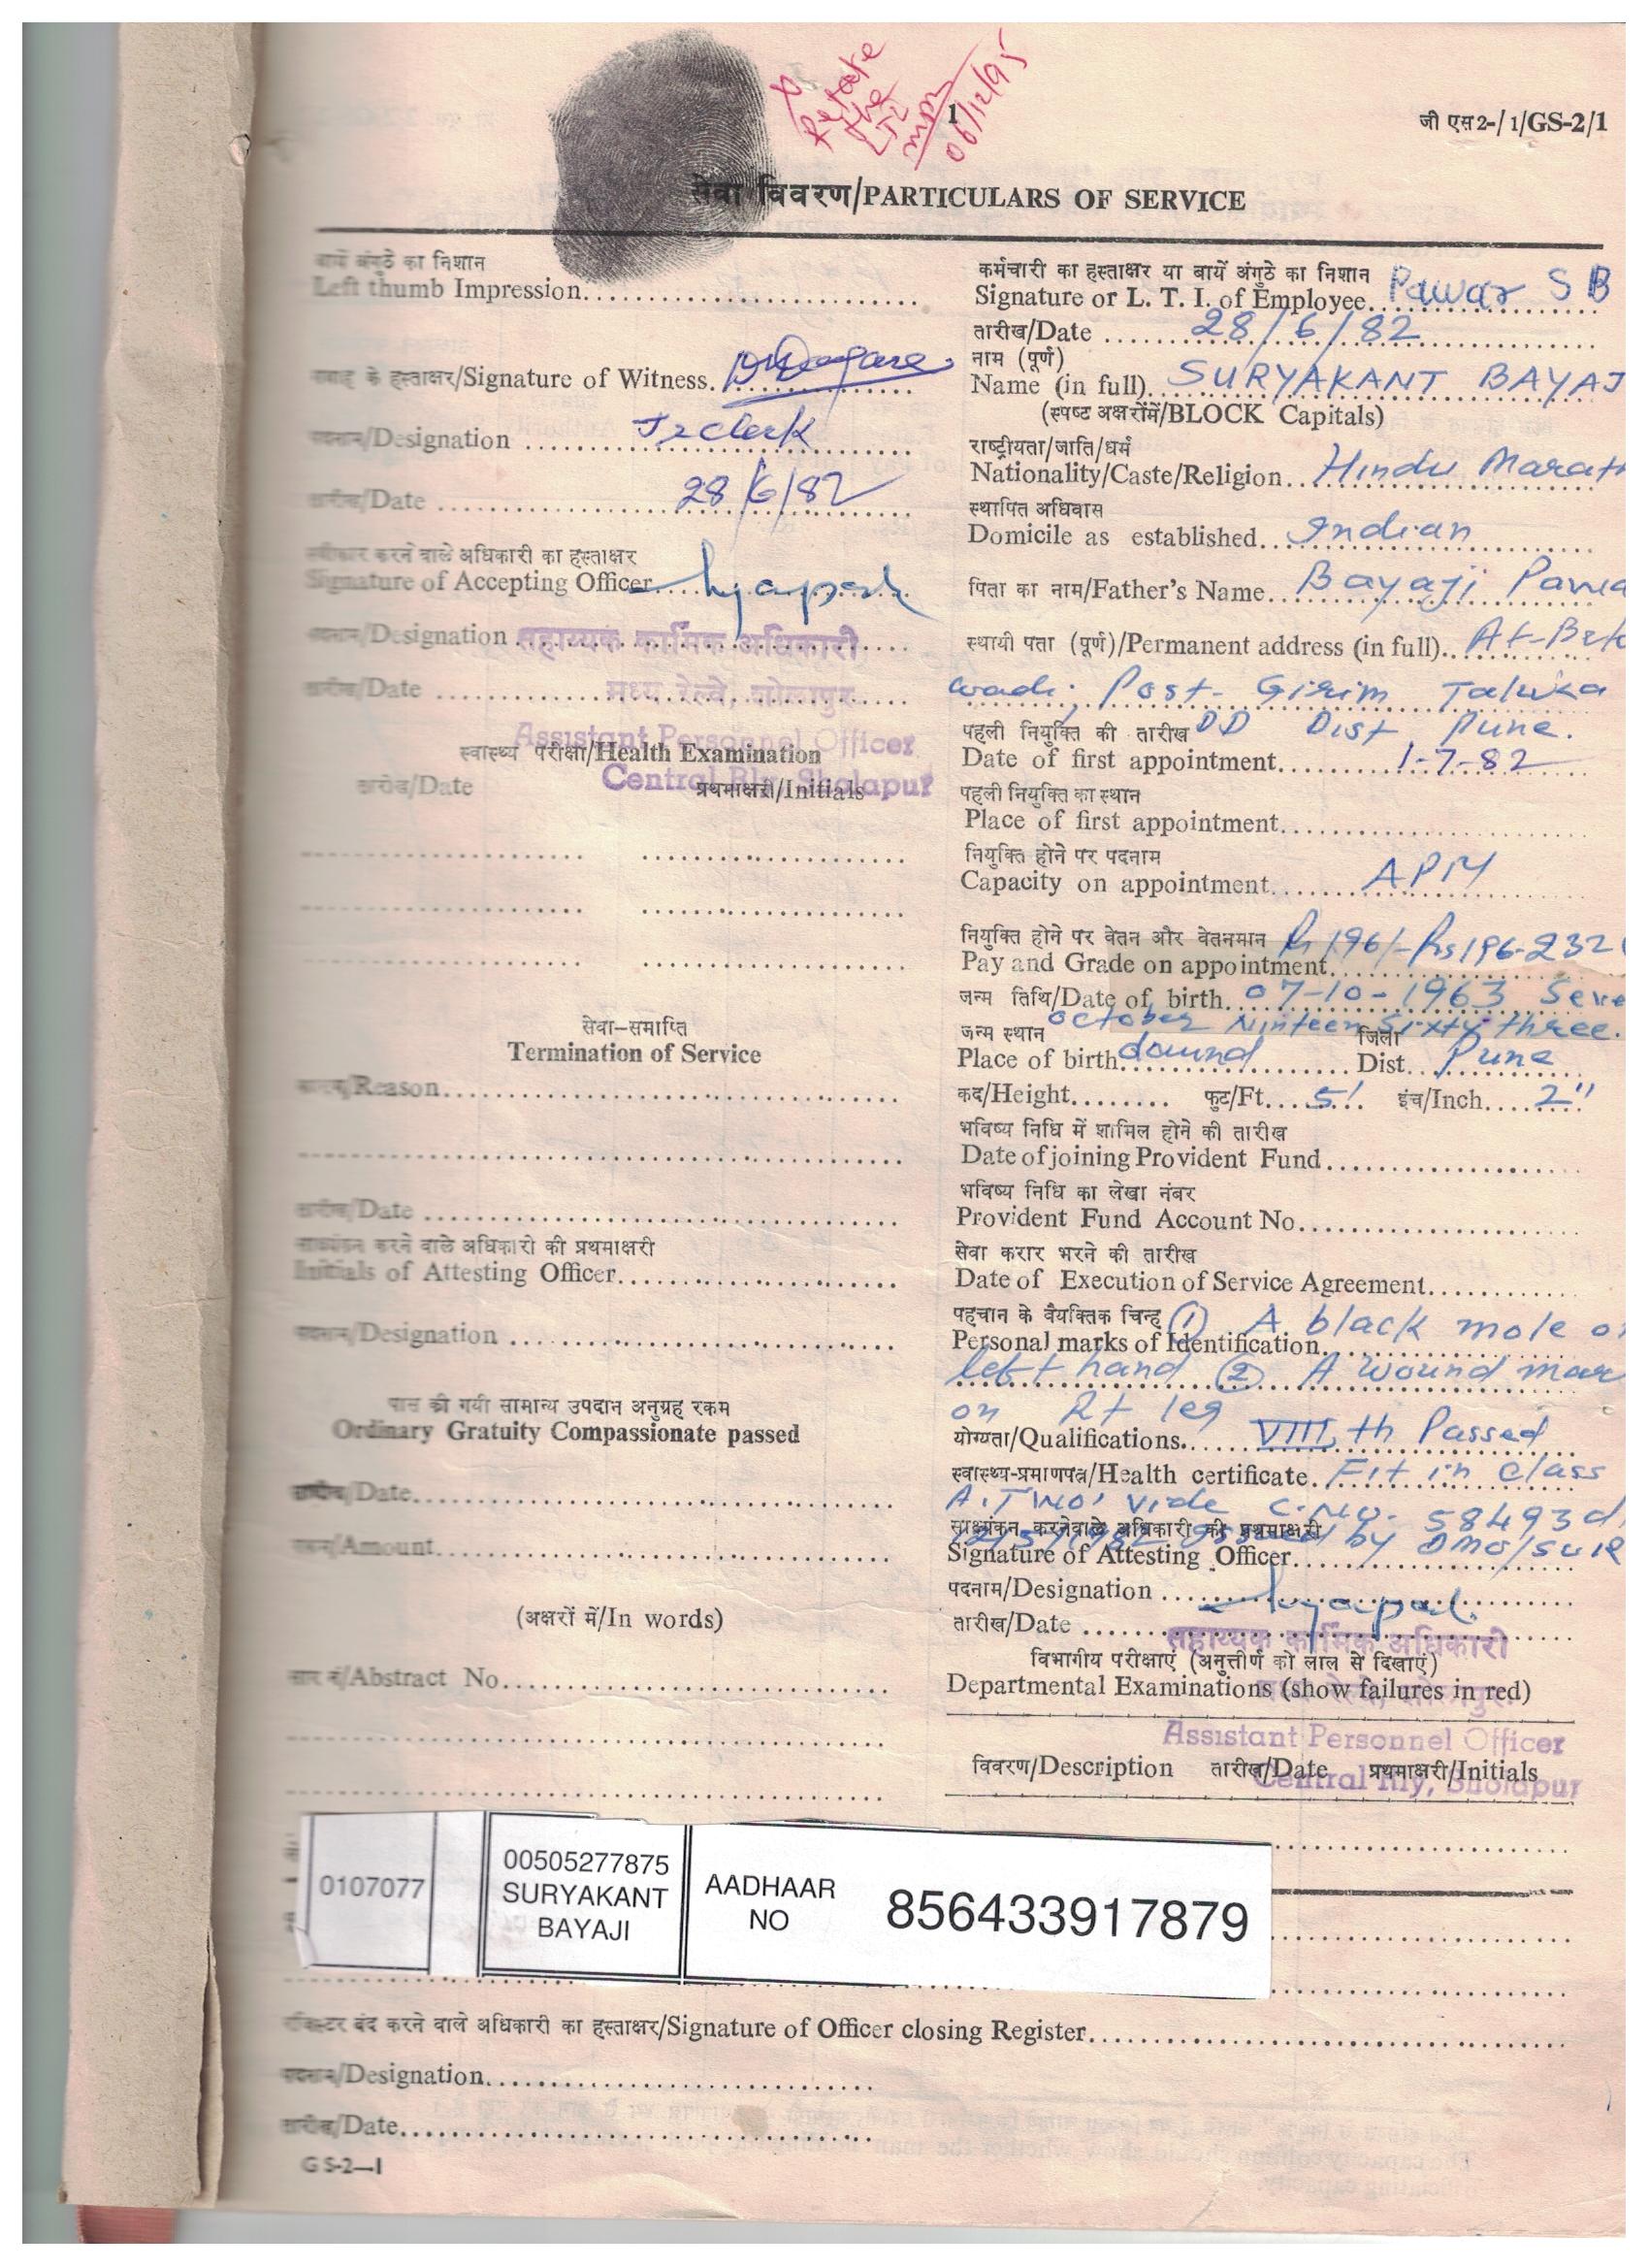 1
जी एस2-/ 1/GS-2/1
06/12/95
सेवा विवरण/PARTICULARS OF SERVICE
बायें अंगुठे का निशान
Left thumb Impression
के हस्ताक्षर/Signature of Witness.
/Designation Jr clerk
तारीख/Date 28/6/82
स्वीकार करने वाले अधिकारी का हस्ताक्षर
Signature of Accepting Officer
/Designation
सहाय्यक कार्मिक अधिकारी
तारीख/Date
मध्य रेल्वे, सोलापुर
Assistant Personnel Officer
Central Rly, Sholapur
स्वास्थ्य परीक्षा/Health Examination
तारीख/Date प्रथमाक्षरी/Initials
सेवा-समाप्ति
Termination of Service
/Reason
तारीख/Date
करने वाले अधिकारो की प्रथमाक्षरी
Initials of Attesting Officer
/Designation
पास की गयी सामान्य उपदान अनुग्रह रकम
Ordinary Gratuity Compassionate passed
तारीख/Date
/Amount
(अक्षरों में/In words)
सार नं/Abstract No.
कर्मचारी का हस्ताक्षर या बायें अंगुठे का निशान
Signature or L. T. I. of Employee Pawar S B
तारीख/Date 28/6/82
नाम (पूर्ण)
Name (in full) SURYAKANT BAYAJ
(स्पष्ट अक्षरोंमें/BLOCK Capitals)
राष्ट्रीयता/जाति/धर्म
Nationality/Caste/Religion Hindu Marat
स्थापित अधिवास
Domicile as established Indian
पिता का नाम/Father's Name Bayaji Pawa
स्थायी पता (पूर्ण)/Permanent address (in full) At-
wadi, Post- Girim Taluka
पहली नियुक्ति की तारीख DD Dist Pune.
Date of first appointment 1-7-82
पहली नियुक्ति का स्थान
Place of first appointment
नियुक्ति होने पर पदनाम
Capacity on appointment APM
नियुक्ति होने पर वेतन और वेतनमान Rs 196/- Rs 196-232
Pay and Grade on appointment
जन्म तिथि/Date of birth 07-10-1963 Seve
October Ninteen Sixty three.
जन्म स्थान जिला
Place of birth dound Dist Pune
कद/Height फुट/Ft 5' इंच/Inch 2"
भविष्य निधि में शामिल होने की तारीख
Date of joining Provident Fund
भविष्य निधि का लेखा नंबर
Provident Fund Account No.
सेवा करार भरने की तारीख
Date of Execution of Service Agreement
पहचान के वैयक्तिक चिन्ह ① A black mole o
Personal marks of Identification
left hand ② A wound mar
on Rt leg
योग्यता/Qualifications VIII th Passed
स्वास्थ्य-प्रमाणपत्र/Health certificate Fit in class
A. Two, vide C. No. 58493 d
issued by DMO/SUR
साक्ष्यंकन करनेवाले अधिकारी की प्रथमाक्षरी
Signature of Attesting Officer
पदनाम/Designation
तारीख/Date
सहाय्यक कार्मिक अधिकारी
विभागीय परीक्षाएं (अनुत्तीर्ण को लाल से दिखाएं)
Departmental Examinations (show failures in red)
Assistant Personnel Officer
विवरण/Description तारीख/Date प्रथमाक्षरी/Initials
Central Rly, Sholapur
0107077
00505277875
SURYAKANT
BAYAJI
AADHAAR
NO
856433917879
रजिस्टर बंद करने वाले अधिकारी का हस्ताक्षर/Signature of Officer closing Register
/Designation
तारीख/Date
G S-2—1